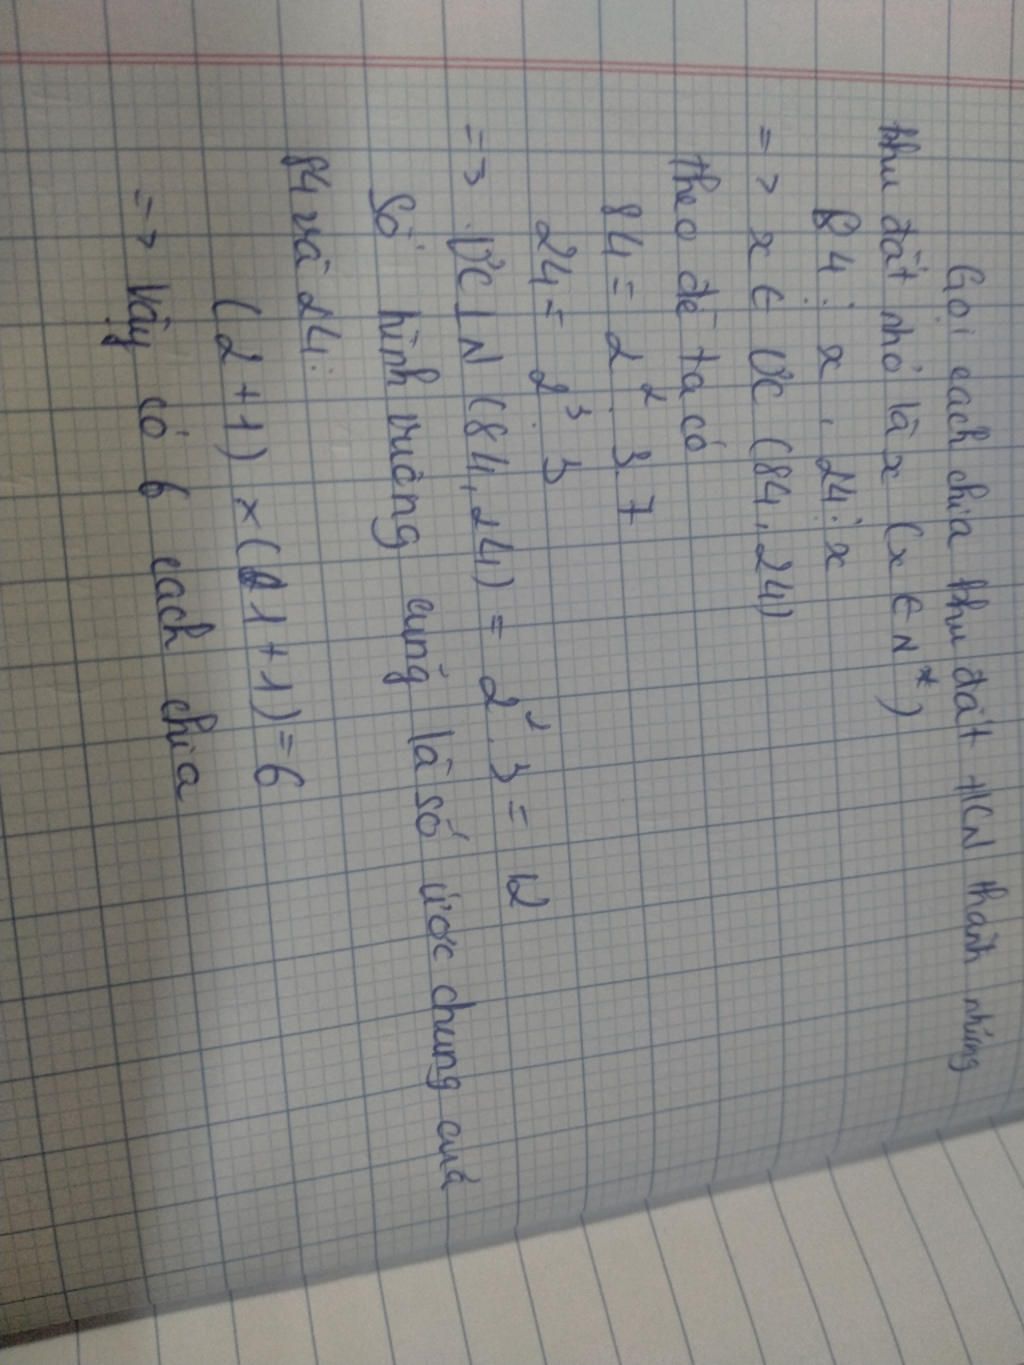 Gọi cach chia khu đất HCN thành nhưng
khu đất nhỏ là x (x ∈ N*)
84 ⋮ x , 24 ⋮ x
=> x ∈ ƯC (84, 24)
theo đề ta có
84 = 2². 3. 7
24 = 2³. 3
=> ƯCLN (84, 24) = 2². 3 = 12
Số hình vuông cung là số ước chung cuả
84 và 24:
(2 + 1) x (1 + 1) = 6
=> Vậy có 6 cach chia